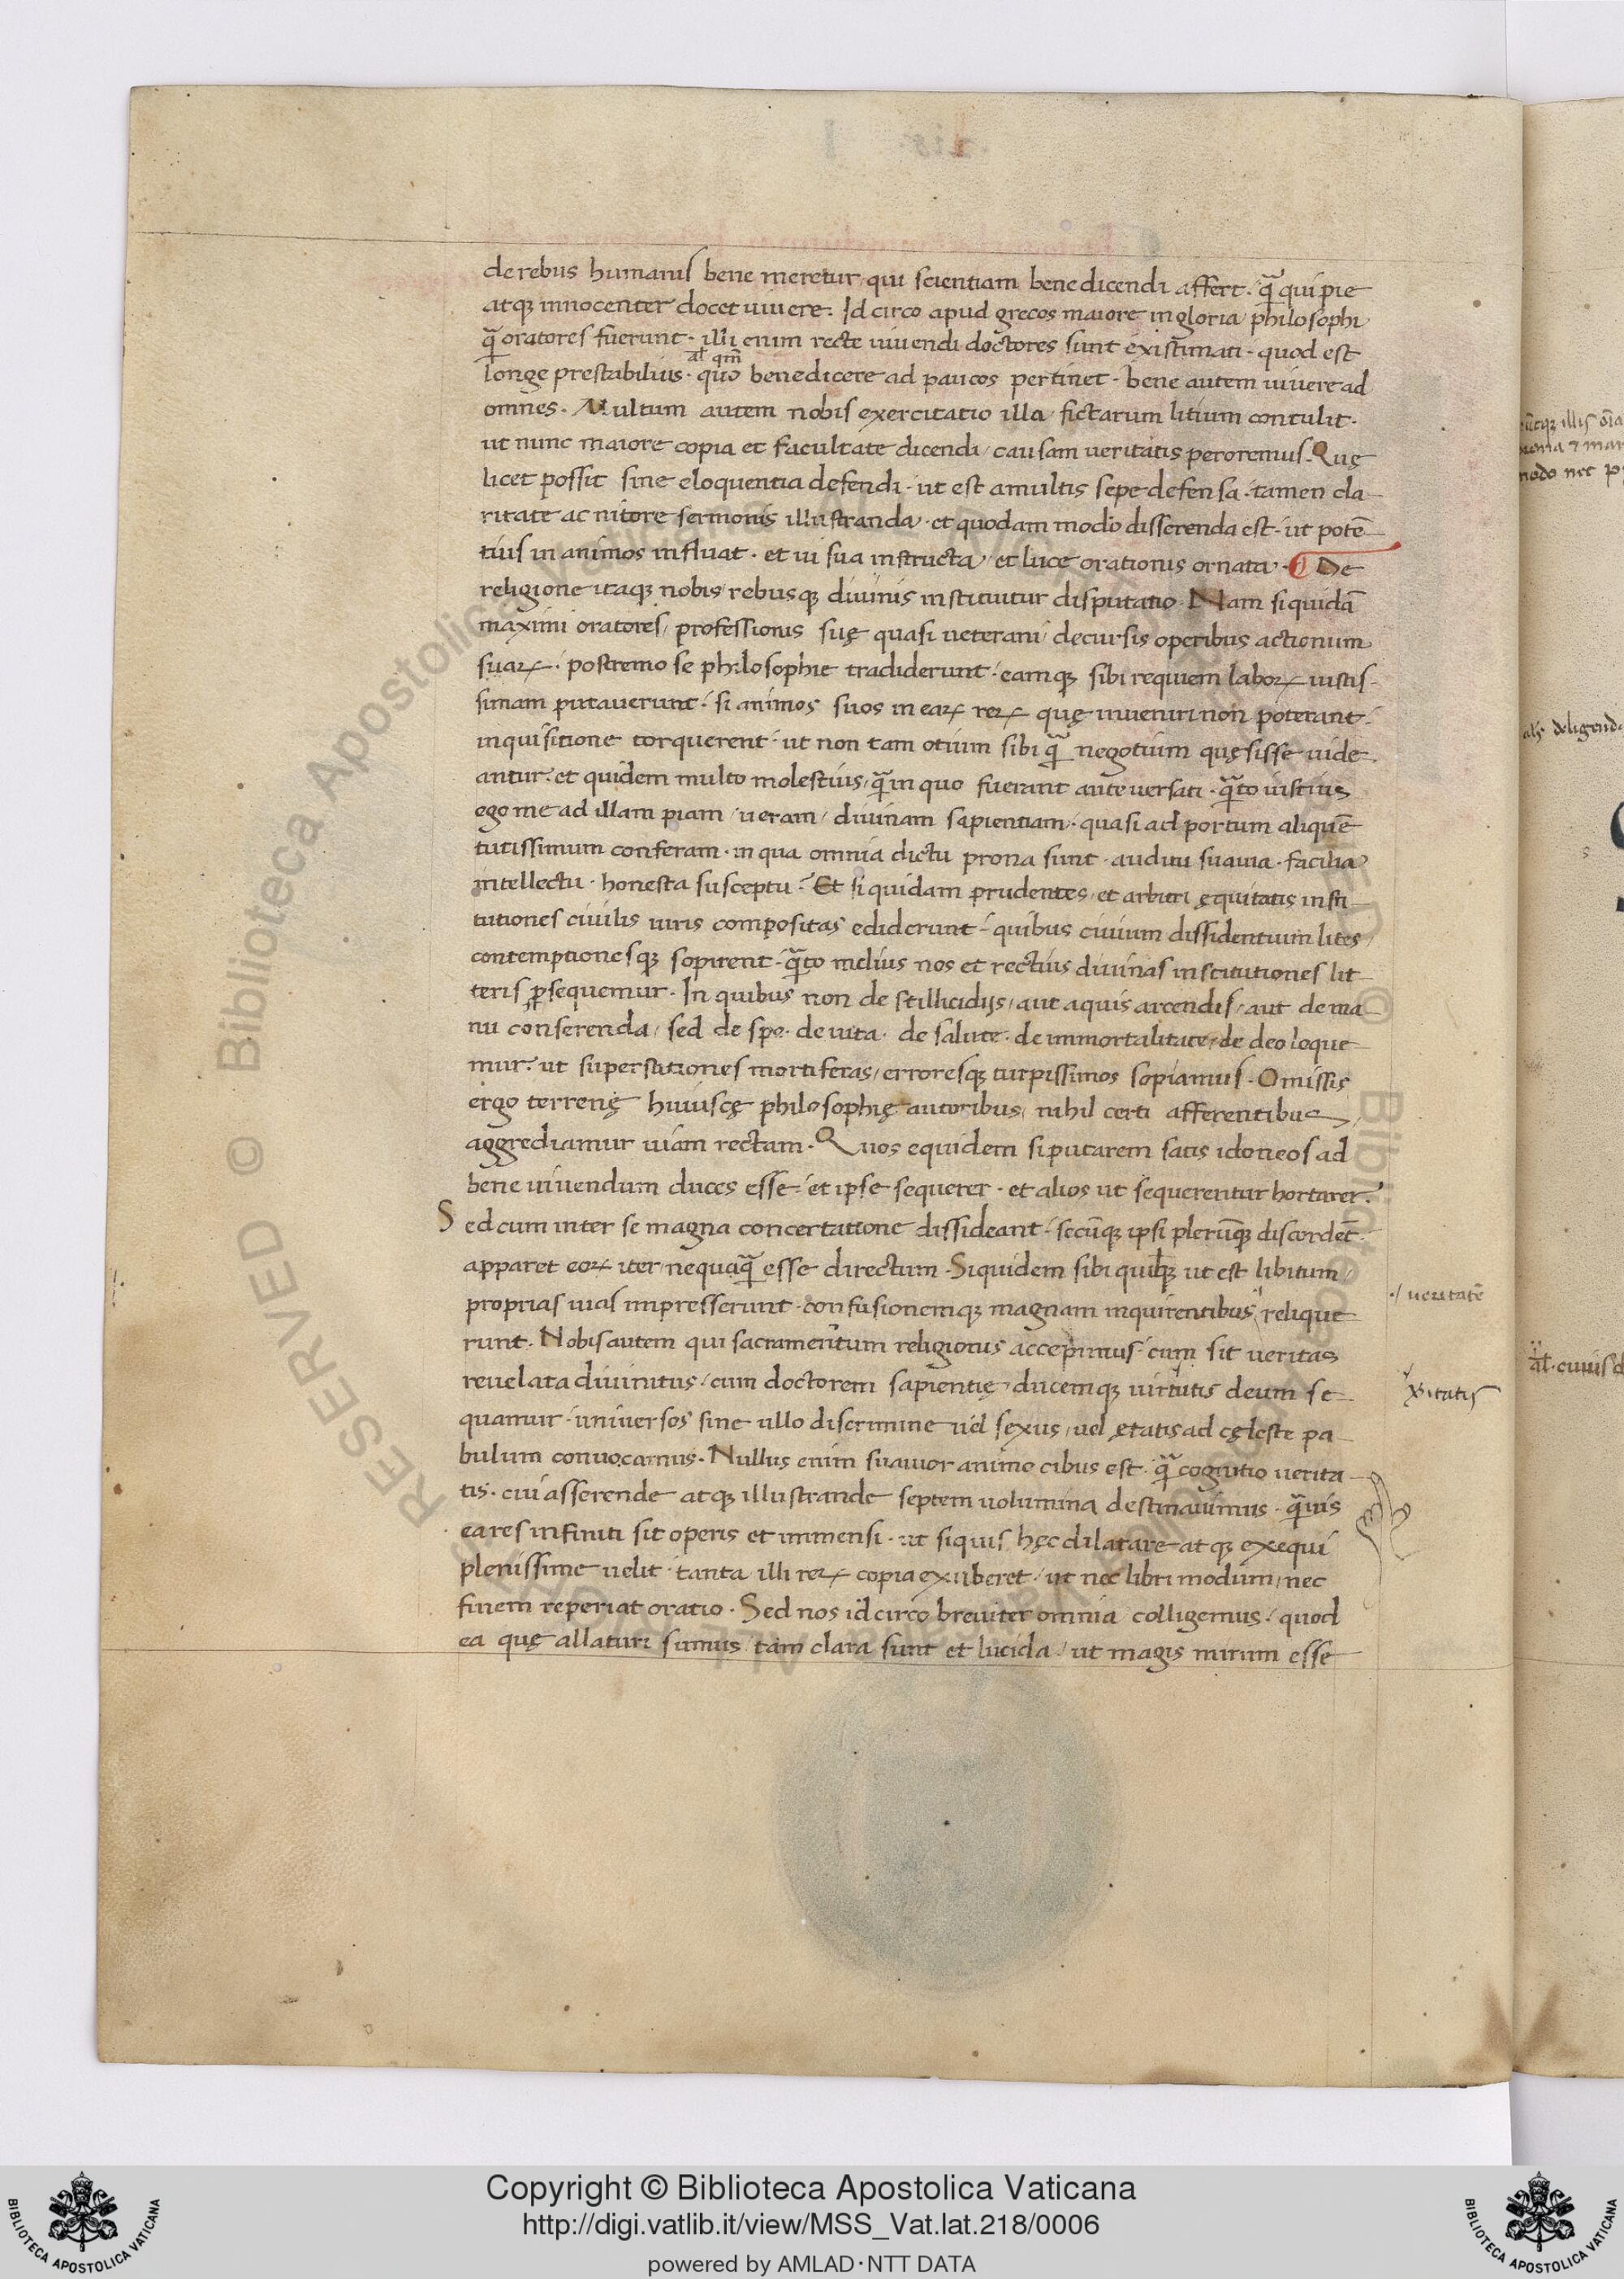 de rebus humanis bene meretur qui scientiam bene dicendi affert · q̃ qui pie
atqꝫ innocenter docet uiuere · Id circo apud grecos maiore in gloria philosophi
q̃ oratores fuerunt · illi enim recte uiuendi doctores sunt existimati · quod est
al' qm̃
longe prestabilius · quo bene dicere ad paucos pertinet · bene autem uiuere ad
omnes · Multum autem nobis exercitatio illa fictarum litium contulit ·
ut nunc maiore copia et facultate dicendi / causam ueritatis peroremus · Quę
licet possit sine eloquentia defendi · ut est a multis sepe defensa · tamen cla
ritate ac nitore sermonis illustranda · et quodam modo disserenda est · ut potē
tius in animos influat · et ui sua instructa / et luce orationis ornata · De
religione itaqꝫ nobis / rebusqꝫ diuinis instituitur disputatio · Nam si quidā
maximi oratores / professionis suę quasi ueterani / decursis operibus actionum
suaꝝ · postremo se philosophie tradiderunt · eamqꝫ sibi requiem laboꝝ iustis
simam putauerunt · si animos suos in eaꝝ reꝝ quę inueniri non poterant ·
inquisitione torquerent · ut non tam otium sibi q̃ negotium quęsisse uide
antur · et quidem multo molestius / q̃ in quo fuerant ante uersati · q̃to iustius
ego me ad illam piam / ueram / diuinam sapientiam · quasi ad portum aliquē
tutissimum conferam · in qua omnia dictu prona sunt · auditu suauia · facilia
intellectu · honesta susceptu · Et si quidam prudentes / et arbitri ęquitatis insti
tutiones ciuilis iuris compositas ediderunt · quibus ciuium dissidentium lites /
contemptionesqꝫ sopirent · q̃to melius nos et rectius diuinas institutiones lit
teris ꝑsequemur · In quibus non de stillicidijs / aut aquis arcendis / aut de ma
nu conserenda / sed de spe · de uita · de salute · de immortalitate · de deo loque
mur · ut superstitiones mortiferas / erroresqꝫ turpissimos sopiamus · Omissis
ergo terrenę huiuscę philosophię autoribus / nihil certi afferentibus /
aggrediamur uiam rectam · Quos equidem si putarem satis idoneos ad
bene uiuendum duces esse · et ipse sequerer · et alios ut sequerentur hortarer ·
Sed cum inter se magna concertatione dissideant · secūqꝫ ipsi plerūqꝫ discordēt ·
apparet eoꝝ iter nequaq̃ esse directum · Siquidem sibi quibqꝫ ut est libitum /
proprias uias impresserunt · confusionemqꝫ magnam inquirentibus relique
·/ ueritatē
runt · Nobis autem qui sacramentum religionis accepimus · cum sit ueritas
reuelata diuinitus / cum doctorem sapientię / ducemqꝫ uirtutis deum se
quamur · uniuersos sine ullo discrimine uel sexus / uel ętatis ad cęleste pa
bulum conuocamus · Nullus enim suauior animo cibus est · q̃ cognitio uerita
tis · cui asserende atqꝫ illustrande septem uolumina destinauimus · q̃uis
ea res infiniti sit operis et immensi · ut siquis hęc dilatare atqꝫ exequi
plenissime uelit · tanta illi reꝝ copia exuberet / ut nec libri modum / nec
finem reperiat oratio · Sed nos id circo breuiter omnia colligemus / quod
ea quę allaturi sumus / tam clara sunt et lucida / ut magis mirum esse
al' deligend
al' · cuius d
Copyright © Biblioteca Apostolica Vaticana
http://digi.vatlib.it/view/MSS_Vat.lat.218/0006
powered by AMLAD · NTT DATA
BIBLIOTECA APOSTOLICA VATICANA
BIBLIOTECA APOSTOLICA VATICANA